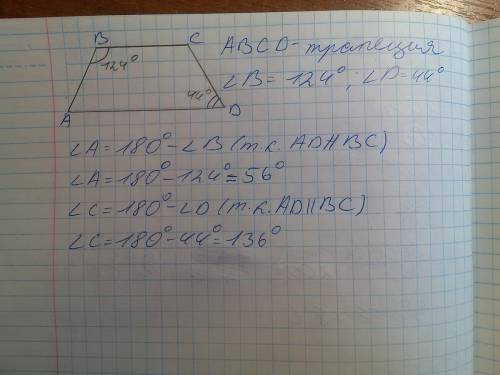 B C
124°
44°
A D
ABCD - трапеция
∠B = 124°; ∠D = 44°
∠A = 180° - ∠B (т.к. AD∥BC)
∠A = 180° - 124° = 56°
∠C = 180° - ∠D (т.к. AD∥BC)
∠C = 180° - 44° = 136°